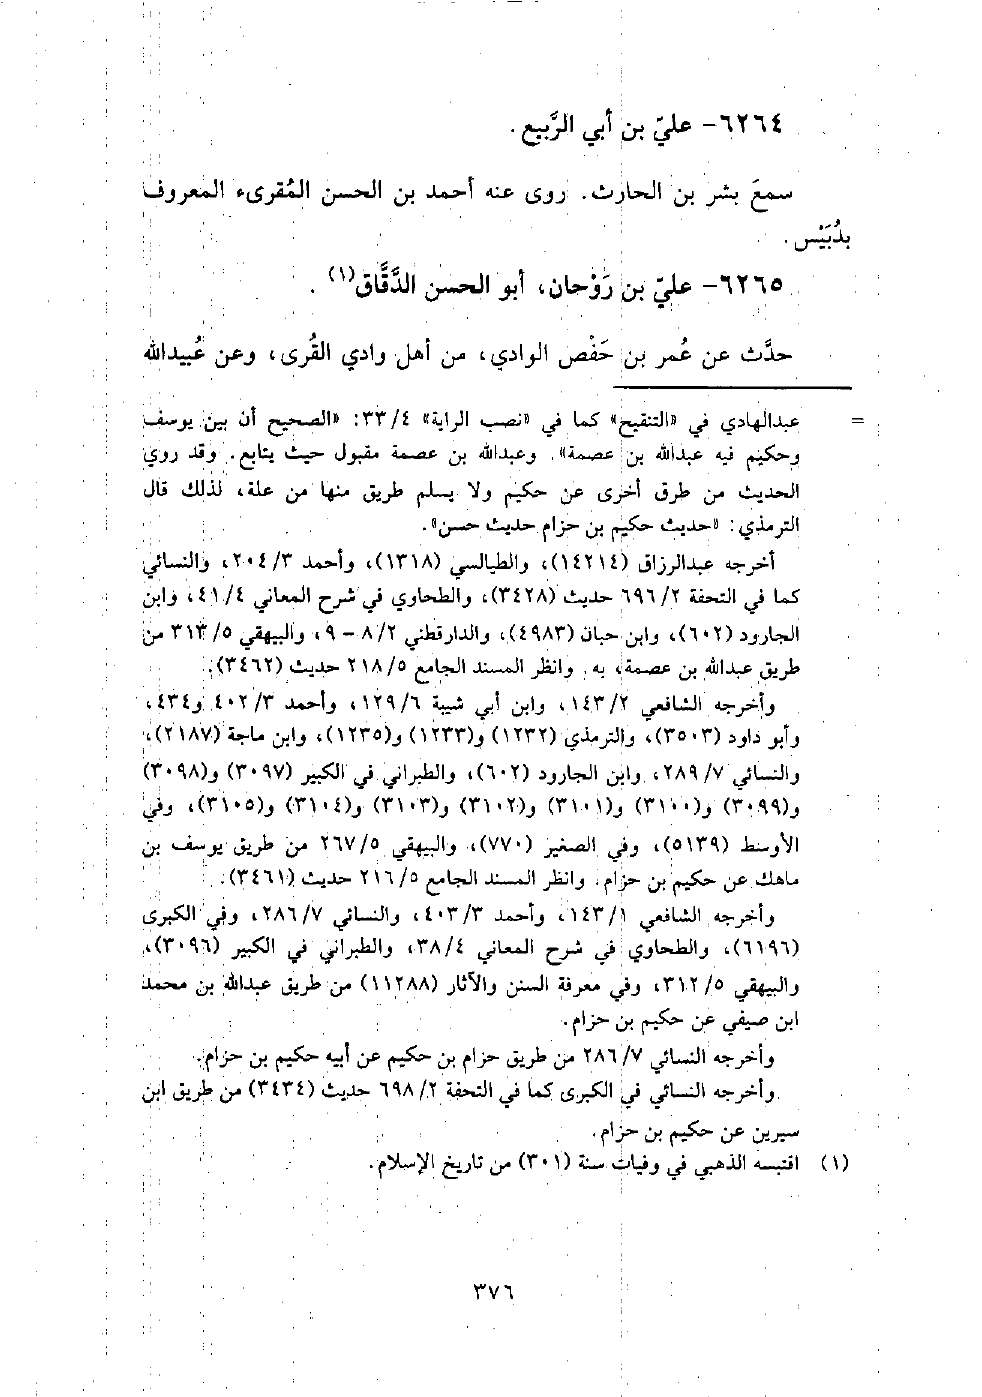 ٦٢٦٤- عليّ بن أبي الرَّبيع.
سمعَ بشر بن الحارث. روى عنه أحمد بن الحسن المُقرىء المعروف
بدُبَيْس.
٦٢٦٥- عليّ بن رَوْحان، أبو الحسن الدَّقَّاق(١).
حدَّث عن عُمر بن حَفْص الوادي، من أهل وادي القُرى، وعن عُبيدالله
= عبدالهادي في «التنقيح» كما في «نصب الراية» ٤/ ٣٣: «الصحيح أن بين يوسف
وحكيم فيه عبدالله بن عصمة». وعبدالله بن عصمة مقبول حيث يتابع. وقد روي
الحديث من طرق أخرى عن حكيم ولا يسلم طريق منها من علة، لذلك قال
الترمذي: «حديث حكيم بن حزام حديث حسن».
أخرجه عبدالرزاق (١٤٢١٤)، والطيالسي (١٣١٨)، وأحمد ٣/ ٢٠٤، والنسائي
كما في التحفة ٢/ ٦٩٦ حديث (٣٤٢٨)، والطحاوي في شرح المعاني ٤/ ٤١، وابن
الجارود (٦٠٢)، وابن حبان (٤٩٨٣)، والدارقطني ٢/ ٨ - ٩، والبيهقي ٥/ ٣١٣ من
طريق عبدالله بن عصمة، به. وانظر المسند الجامع ٥/ ٢١٨ حديث (٣٤٦٢).
وأخرجه الشافعي ٢/ ١٤٣، وابن أبي شيبة ٦/ ١٢٩، وأحمد ٣/ ٤٠٢ و٤٣٤،
وأبو داود (٣٥٠٣)، والترمذي (١٢٣٢) و(١٢٣٣) و(١٢٣٥)، وابن ماجة (٢١٨٧)،
والنسائي ٧/ ٢٨٩، وابن الجارود (٦٠٢)، والطبراني في الكبير (٣٠٩٧) و(٣٠٩٨)
و(٣٠٩٩) و(٣١٠٠) و(٣١٠١) و(٣١٠٢) و(٣١٠٣) و(٣١٠٤) و(٣١٠٥)، وفي
الأوسط (٥١٣٩)، وفي الصغير (٧٧٠)، والبيهقي ٥/ ٢٦٧ من طريق يوسف بن
ماهك عن حكيم بن حزام. وانظر المسند الجامع ٥/ ٢١٦ حديث (٣٤٦١).
وأخرجه الشافعي ١/ ١٤٣، وأحمد ٣/ ٤٠٣، والنسائي ٧/ ٢٨٦، وفي الكبرى
(٦١٩٦)، والطحاوي في شرح المعاني ٤/ ٣٨، والطبراني في الكبير (٣٠٩٦)،
والبيهقي ٥/ ٣١٢، وفي معرفة السنن والآثار (١١٢٨٨) من طريق عبدالله بن محمد
ابن صيفي عن حكيم بن حزام.
وأخرجه النسائي ٧/ ٢٨٦ من طريق حزام بن حكيم عن أبيه حكيم بن حزام.
وأخرجه النسائي في الكبرى كما في التحفة ٢/ ٦٩٨ حديث (٣٤٣٤) من طريق ابن
سيرين عن حكيم بن حزام.
(١) اقتبسه الذهبي في وفيات سنة (٣٠١) من تاريخ الإسلام.
٣٧٦